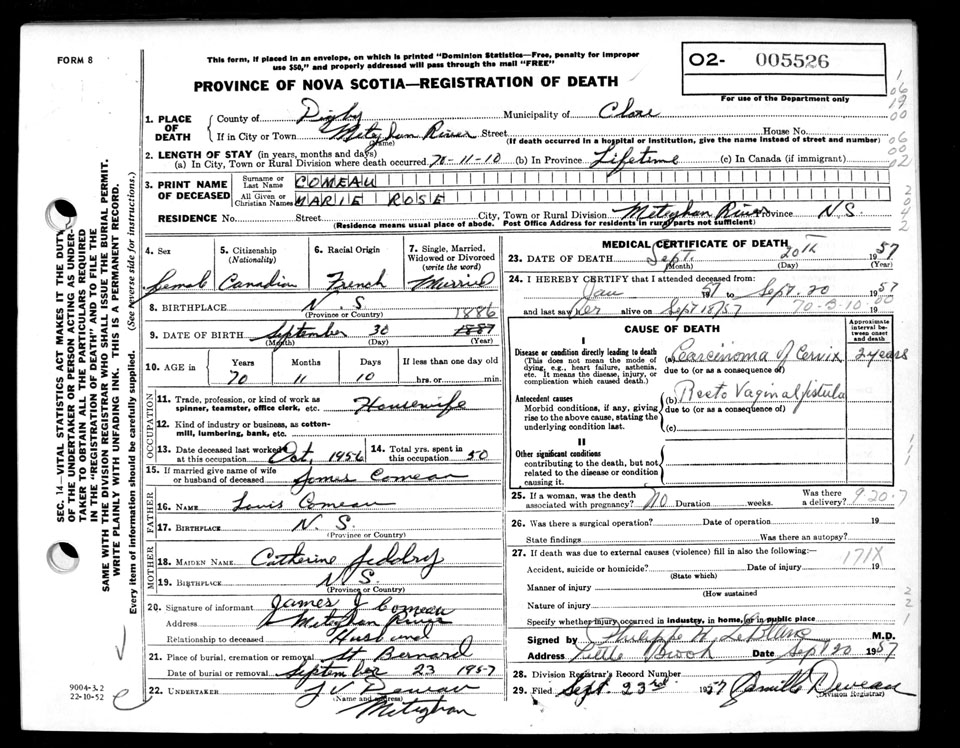 FORM 8
This form, if placed in an envelope, on which is printed "Dominion Statistics—Free, penalty for improper
use $50," and properly addressed will pass through the mail "FREE"
O2- 005526
For use of the Department only
PROVINCE OF NOVA SCOTIA—REGISTRATION OF DEATH
SEC. 14—VITAL STATISTICS ACT MAKES IT THE DUTY
OF THE UNDERTAKER OR PERSON ACTING AS UNDER-
TAKER TO OBTAIN ALL THE PARTICULARS REQUIRED
IN THE "REGISTRATION OF DEATH" AND TO FILE THE
SAME WITH THE DIVISION REGISTRAR WHO SHALL ISSUE THE BURIAL PERMIT.
WRITE PLAINLY WITH UNFADING INK. THIS IS A PERMANENT RECORD.
Every item of Information should be carefully supplied. (See reverse side for instructions.)
1. PLACE OF DEATH
County of Digby Municipality of Clare
If in City or Town Meteghan River Street House No.
(Name) (If death occurred in a hospital or institution, give the name instead of street and number)
2. LENGTH OF STAY (in years, months and days)
(a) In City, Town or Rural Division where death occurred 70-11-10 (b) In Province Lifetime (c) In Canada (if immigrant)
3. PRINT NAME OF DECEASED
Surname or Last Name COMEAU
All Given or Christian Names MARIE ROSE
RESIDENCE No. Street City, Town or Rural Division Meteghan River Province N.S.
(Residence means usual place of abode. Post Office Address for residents in rural parts not sufficient)
4. Sex 5. Citizenship (Nationality) 6. Racial Origin 7. Single, Married, Widowed or Divorced (write the word)
Female Canadian French Married
8. BIRTHPLACE N. S.
(Province or Country)
1886
9. DATE OF BIRTH September 30 1887
(Month) (Day) (Year)
10. AGE in Years Months Days If less than one day old
70 11 10 hrs. or min.
OCCUPATION
11. Trade, profession, or kind of work as
spinner, teamster, office clerk, etc. Housewife
12. Kind of industry or business, as cotton-
mill, lumbering, bank, etc.
13. Date deceased last worked at this occupation Oct, 1956
14. Total yrs. spent in this occupation 50
15. If married give name of wife
or husband of deceased James Comeau
FATHER
16. NAME Louis Comeau
17. BIRTHPLACE N. S
(Province or Country)
MOTHER
18. MAIDEN NAME Catherine
19. BIRTHPLACE N. S.
(Province or Country)
20. Signature of informant James J Comeau
Address Meteghan River
Relationship to deceased Husband
21. Place of burial, cremation or removal St Bernard
Date of burial or removal September 23 1957
22. UNDERTAKER J V Deveau
(Name and address)
Meteghan
9004-3.2
22-10-52
MEDICAL CERTIFICATE OF DEATH
23. DATE OF DEATH Sept. 20th 1957
(Month) (Day) (Year)
24. I HEREBY CERTIFY that I attended deceased from:
Jan 57 to Sept. 20 1957
and last saw her alive on Sept 18/57 19
70-3-10-00
CAUSE OF DEATH
Approximate interval between onset and death
I
Disease or condition directly leading to death
(This does not mean the mode of
dying, e.g., heart failure, asthenia,
etc. It means the disease, injury, or
complication which caused death.)
(a) Carcinoma of Cervix 2 years
due to (or as a consequence of)
Antecedent causes
Morbid conditions, if any, giving
rise to the above cause, stating the
underlying condition last.
(b) Recto Vaginal fistula
due to (or as a consequence of)
(c)
II
Other significant conditions
contributing to the death, but not
related to the disease or condition
causing it.
25. If a woman, was the death associated with pregnancy? No Duration weeks. Was there a delivery?
9-20-7
26. Was there a surgical operation? Date of operation 19
State findings Was there an autopsy?
27. If death was due to external causes (violence) fill in also the following:—
171X
Accident, suicide or homicide? Date of injury 19
(State which)
Manner of injury
(How sustained)
Nature of injury
Specify whether injury occurred in industry, in home, or in public place
Signed by Philippe H. LeBlanc M.D.
Address Little Brook Date Sept 20 1957
28. Division Registrar's Record Number
29. Filed Sept. 23rd 1957 Camille Deveau
(Division Registrar)